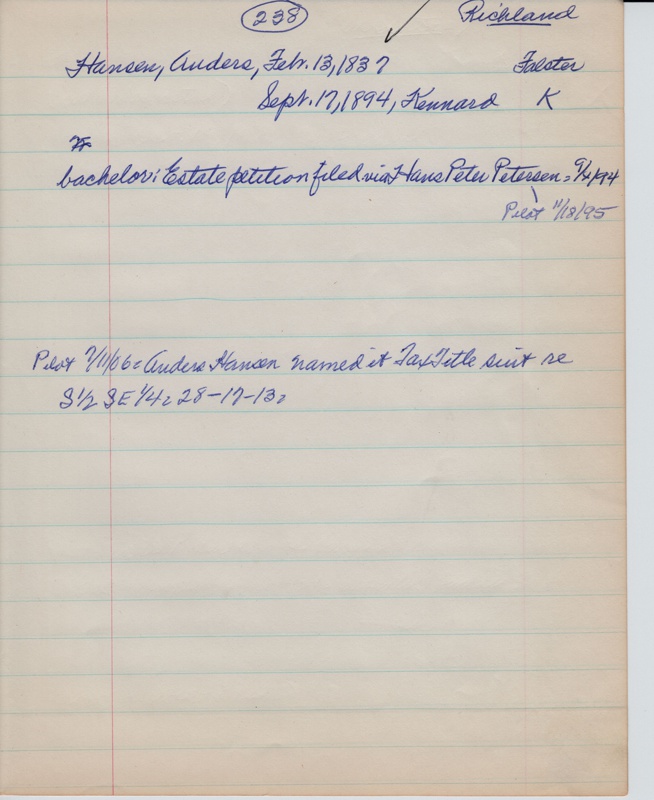 238 Richland
Hansen, Anders, Feb. 13, 1837 Falster
Sept. 17, 1894, Kennard K
bachelor: Estate petition filed via Hans Peter Petersen = 9/24/94
Pilot 11/18/95
Pilot 7/11/06 = Anders Hansen named it Tax Title suit re
S 1/2 SE 1/4 = 28-17-13 =